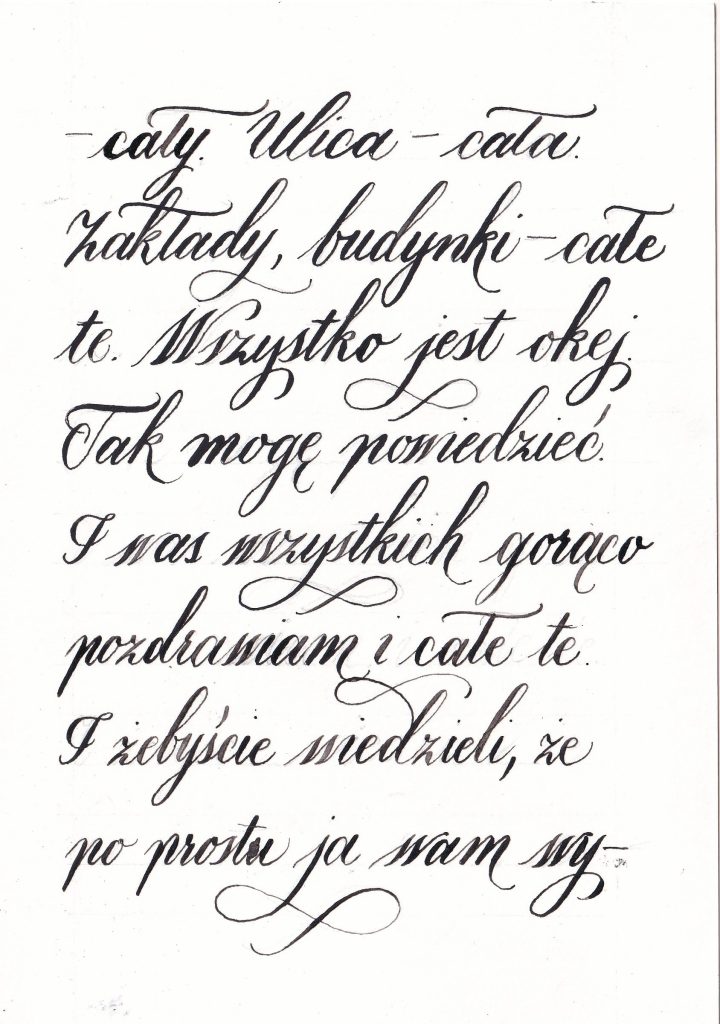 - cały. Ulica - cała.
Zakłady, budynki - całe
te. Wszystko jest okej.
Tak mogę powiedzieć.
I was wszystkich gorąco
pozdrawiam i całe te.
I żebyście wiedzieli, że
po prostu ja wam wy-